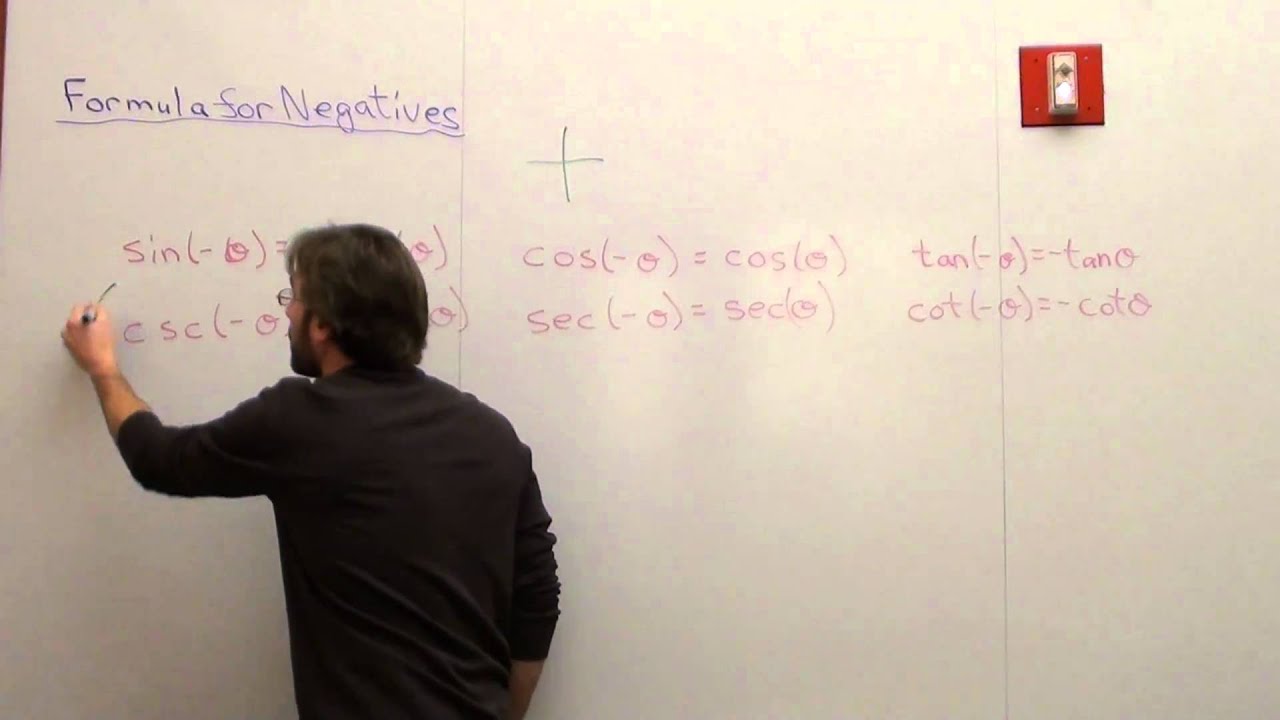 Formula for Negatives
sin(-θ)= (θ) cos(-θ) = cos(θ) tan(-θ)=-tanθ
csc(-θ θ) sec(-θ)= sec(θ) cot(-θ)=-cotθ